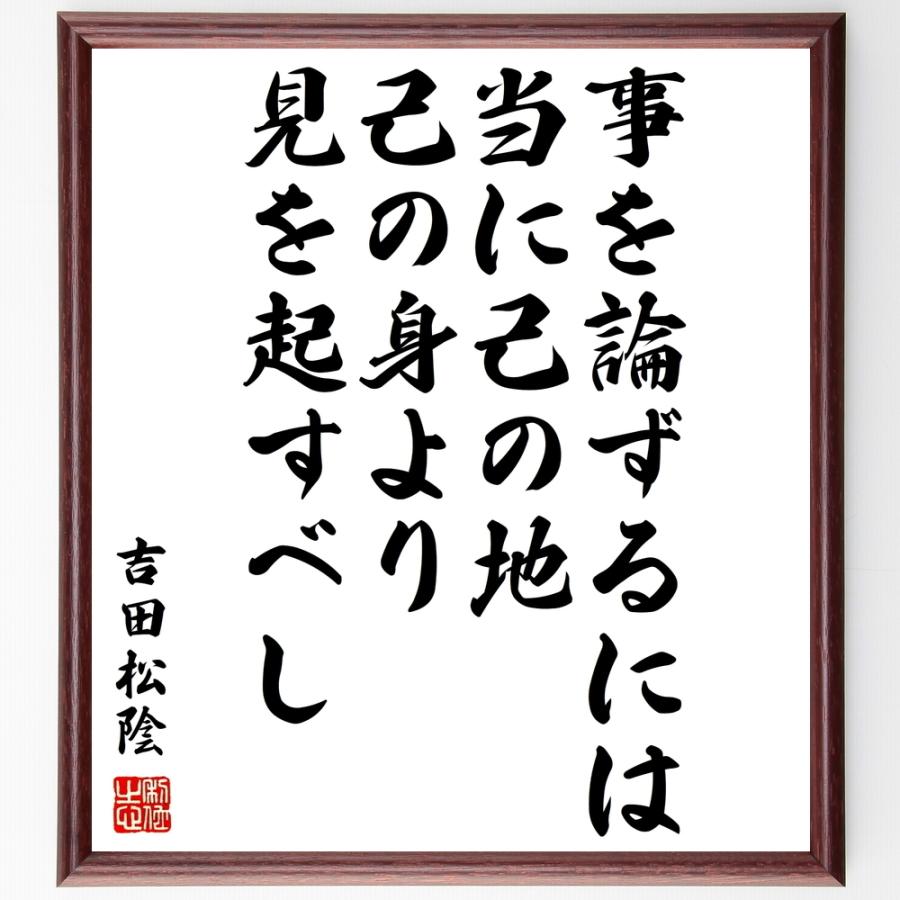 事を論ずるには
当に己の地
己の身より
見を起すべし
吉田松陰